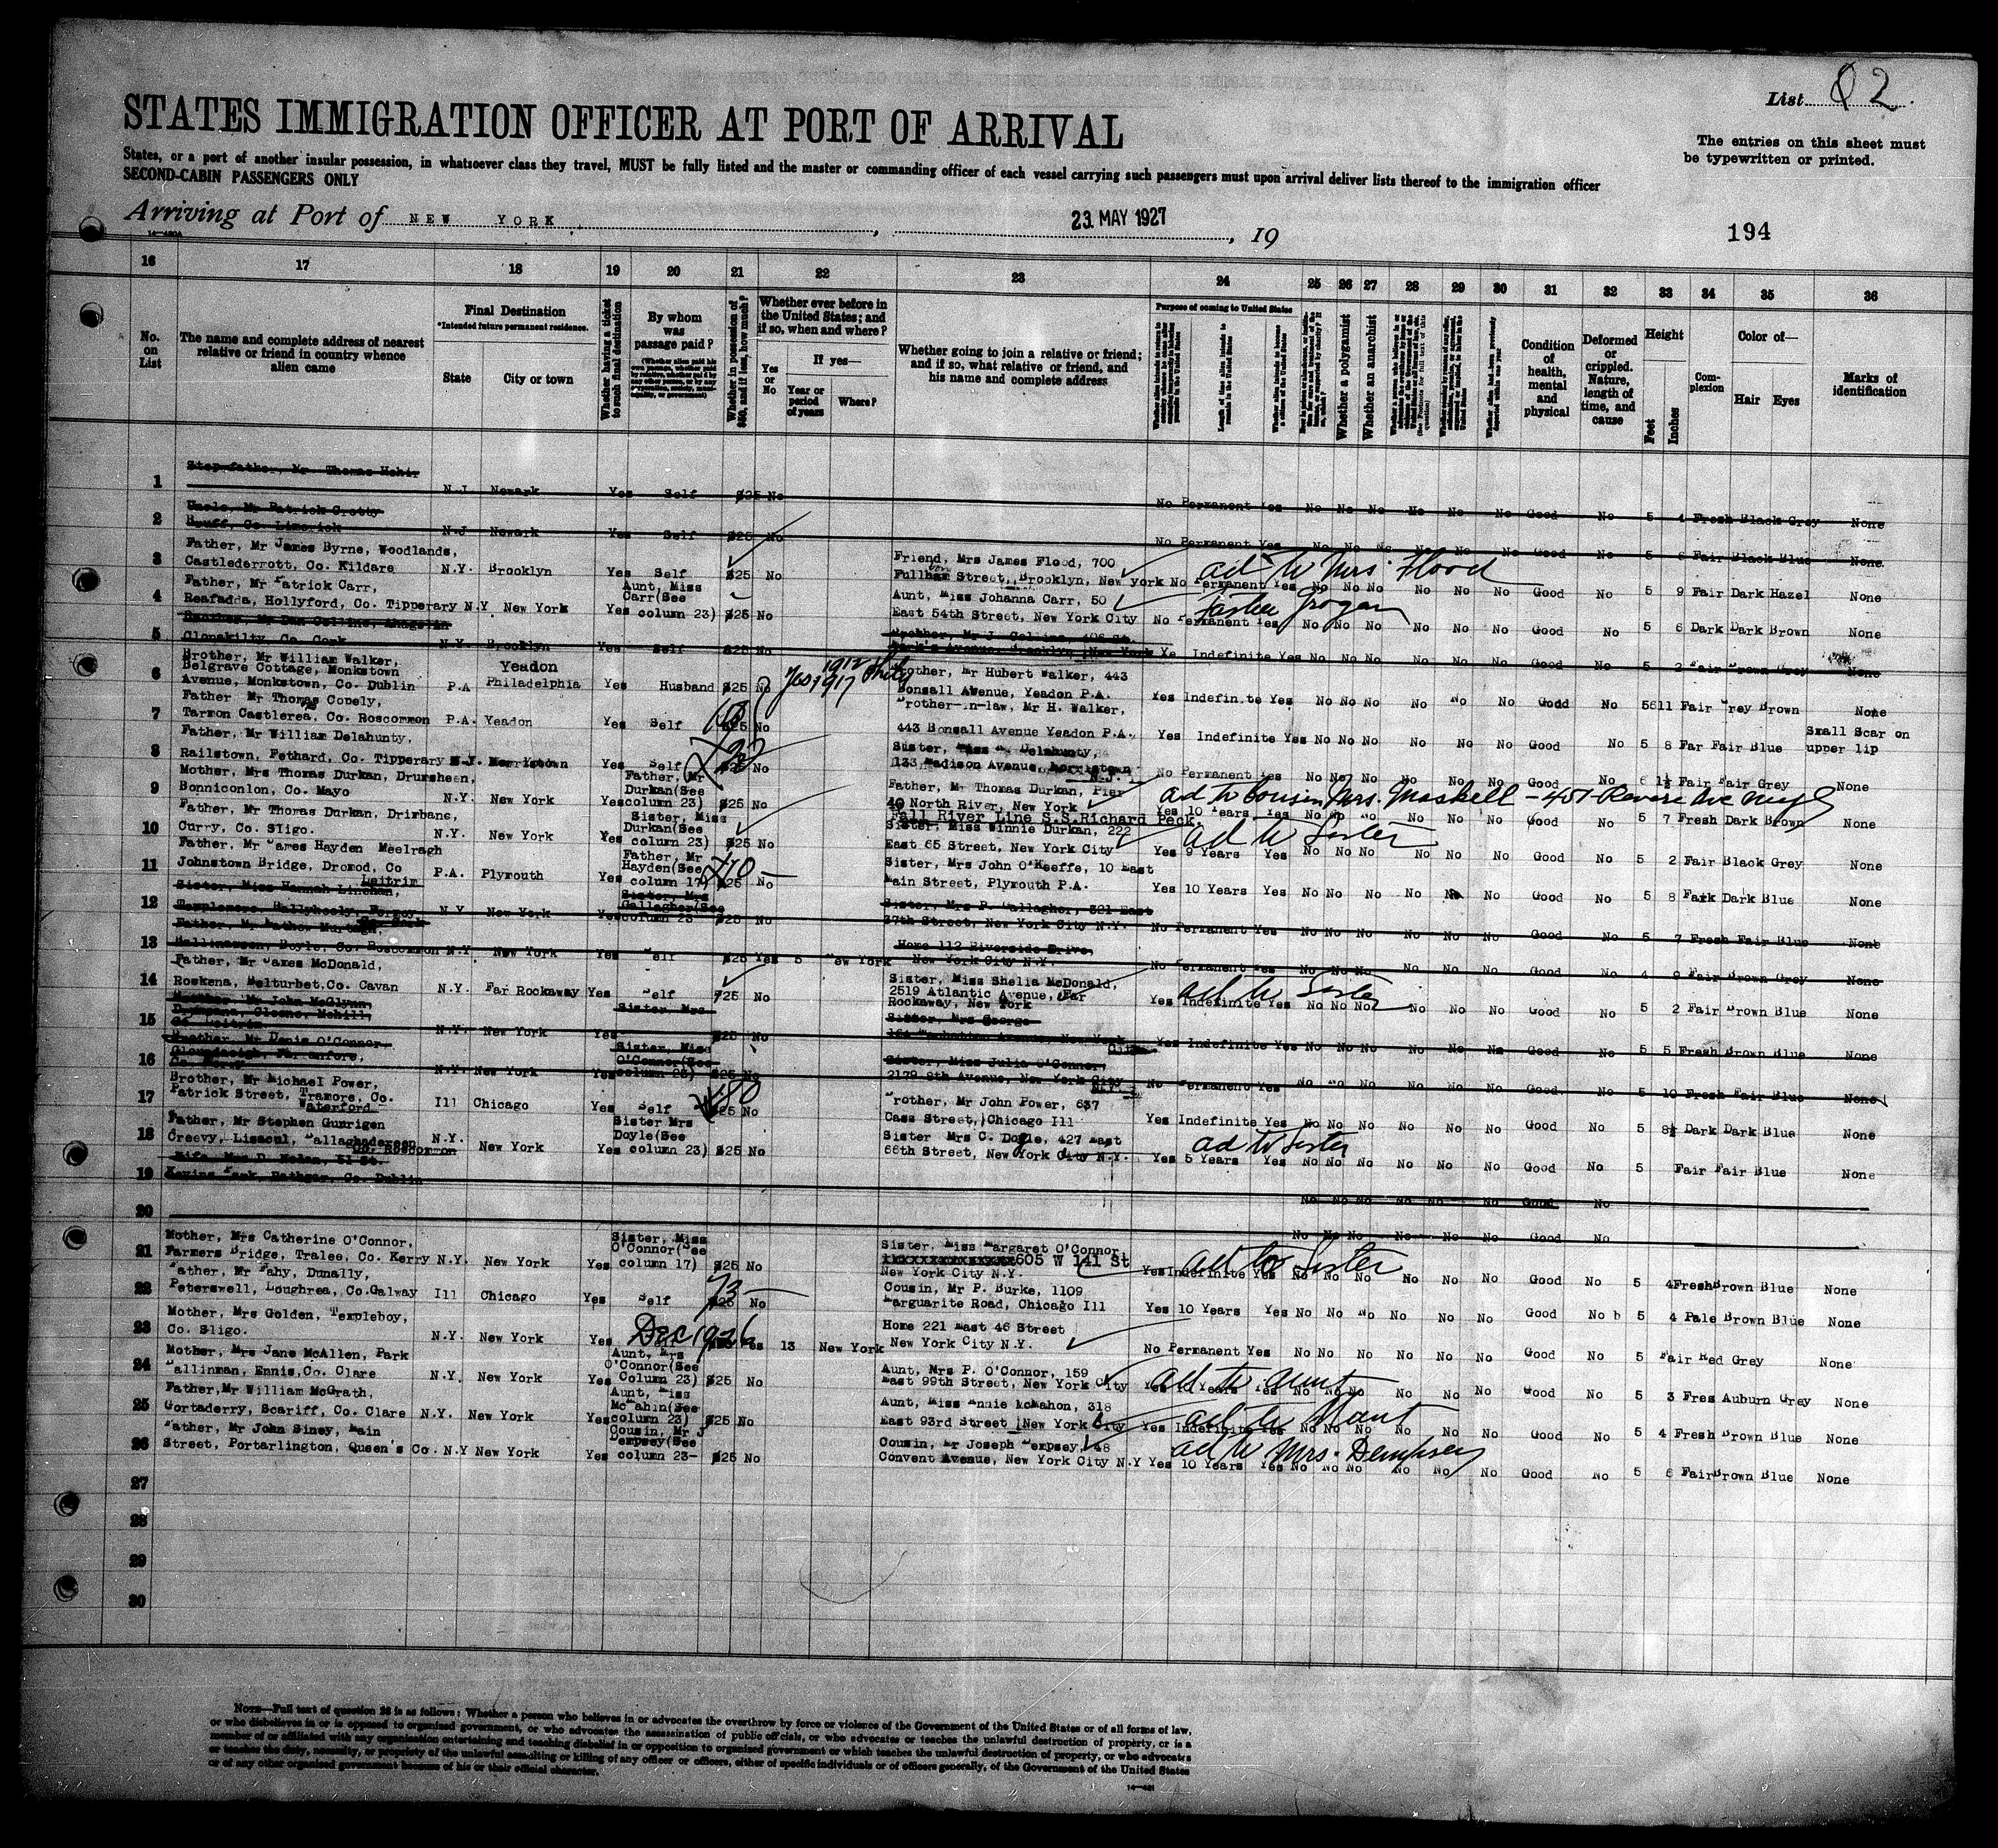 List 82
STATES IMMIGRATION OFFICER AT PORT OF ARRIVAL
The entries on this sheet must
be typewritten or printed.
States, or a port of another insular possession, in whatsoever class they travel, MUST be fully listed and the master or commanding officer of each vessel carrying such passengers must upon arrival deliver lists thereof to the immigration officer
SECOND-CABIN PASSENGERS ONLY
Arriving at Port of NEW YORK, 23 MAY 1927, 19
194
16 17 18 19 20 21 22 23 24 25 26 27 28 29 30 31 32 33 34 35 36
No. on List
The name and complete address of nearest relative or friend in country whence alien came
Final Destination
*Intended future permanent residence.
State City or town
Whether having a ticket to such final destination
By whom was passage paid?
Whether in possession of $50, and if less, how much?
Whether ever before in the United States; and if so, when and where?
Yes or No
If yes—
Year or period of years
Where?
Whether going to join a relative or friend; and if so, what relative or friend, and his name and complete address
Purpose of coming to United States
Length of time alien intends to remain in the United States
Whether a polygamist
Whether an anarchist
Condition of health, mental and physical
Deformed or crippled. Nature, length of time, and cause
Height
Feet Inches
Complexion
Color of—
Hair Eyes
Marks of identification
1 Step-father, Mr. Thomas Hehir
N.J. Newark Yes Self $25 No No Permanent Yes No No No No No No Good No 5 4 Fresh Black Grey None
2 Uncle, Mr Patrick Crotty
Bruff, Co. Limerick N.J Newark Yes Self $25 No No Permanent Yes No No No No No No Good No 5 6 Fair Black Blue None
3 Father, Mr James Byrne, Woodlands,
Castlederrott, Co. Kildare N.Y. Brooklyn Yes Self $25 No
Friend, Mrs James Flood, 700
Street, Brooklyn, New york No Permanent Yes No No No No No No Good No 5 9 Fair Dark Hazel None
ad to Mrs Flood
4 Father, Mr Patrick Carr,
Reafadda, Hollyford, Co. Tipperary N.Y New York Yes
Aunt, Miss
Carr(See
column 23) $25 No
Aunt, Miss Johanna Carr, 50
East 54th Street, New York City No Permanent Yes No No No No No No Good No 5 6 Dark Dark Brown None
Father Grogan
5 Brother, Mr Dan Collins,
Clonakilty, Co. Cork N.Y. Brooklyn Yes Self $25 No
Brother, Mr J. Collins, 406 St.
Mark's Avenue, Brooklyn, New York Ye Indefinite Yes No No No No No No Good No 5 2 Fair Brown Grey None
6 Brother, Mr William Walker,
Belgrave Cottage, Monkstown
Avenue, Monkstown, Co. Dublin P.A Yeadon
Philadelphia Yes Husband $25 No Yes 1912 1917 Phila
Brother, Mr Hubert Walker, 443
Bonsall Avenue, Yeadon P.A. Yes Indefinite Yes No No No No No No Good No Fair Grey Brown None
7 Father Mr Thomas Conely,
Tarmon Castlerea, Co. Roscommon P.A. Yeadon Yes Self $25 No
Brother-in-law, Mr H. Walker,
443 Bonsall Avenue Yeadon P.A. Yes Indefinite Yes No No No No No No Good No 5 8 Far Fair Blue
Small Scar on
upper lip
8 Father, Mr William Delahunty,
Railstown, Fethard, Co. Tipperary N.J. Morristown Yes Self No
Sister, Miss Delahunty,
133 Madison Avenue, Morristown
N.J. No Permanent Yes No No No No No No Good No 6 1½ Fair Fair Grey None
9 Mother, Mrs Thomas Durkan, Drumsheen,
Bonniconlon, Co. Mayo N.Y. New York Yes
Father, (Mr
Durkan(See
column 23) $25 No
Father, Mr Thomas Durkan, Pier
40 North River, New York
Fall River Line S.S.Richard Peck. Yes 10 Years Yes No No No No No No Good No 5 7 Fresh Dark Brown None
ad to Cousin Mrs. Maskell - 451 Revere Ave
10 Father, Mr Thomas Durkan, Drimbane,
Curry, Co. Sligo. N.Y. New York Yes
Sister, Miss
Durkan(See
column 23) $25 No
Sister, Miss Winnie Durkan, 222
East 65 Street, New York City Yes 9 Years Yes No No No No No No Good No 5 2 Fair Black Grey None
ad to Sister
11 Father, Mr James Hayden Meelragh
Johnstown Bridge, Dromod, Co
Leitrim P.A. Plymouth Yes
Father, Mr
Hayden(See
column 17) $25 No
Sister, Mrs John O'Keeffe, 10 East
Main Street, Plymouth P.A. Yes 10 Years Yes No No No No No No Good No 5 8 Dark Blue None
12 Sister, Miss Hannah Linehan,
Templemore, Ballyhooly, Fermoy,
N.Y. New York Yes
Sister, Mrs
Gallagher(See
column 23 $25 No
Sister, Mrs P. Gallagher, 321 East
37th Street, New York City N.Y. No Permanent Yes No No No No No No Good No 5 7 Fresh Fair Blue None
13 Father, Mr Murtagh,
Boyle, Co. Roscommon N.Y. New York Yes Self $25 Yes 5 New York
Home 112 Riverside Drive,
New York City N.Y. No Permanent Yes No No No No No No Good No Fair Brown Grey None
14 Father, Mr James McDonald,
Roskena, Belturbet,Co. Cavan N.Y. Far Rockaway Yes Self $25 No
Sister, Miss Shelia McDonald,
2519 Atlantic Avenue, Far
Rockaway, New York Yes Indefinite Yes No No No No No No Good No 5 2 Fair Brown Blue None
ad to Sister
15 Mr John McGlynn,
Cloone, Mohill,
Co Leitrim N.Y. New York Yes Sister, Mrs $25 No
Sister, Mrs George
Avenue, New York
Yes Indefinite Yes No No No No No No Good No 5 5 Fresh Brown Blue None
16 Brother, Mr Denis O'Connor
Farranfore,
N.Y. New York Yes
Sister, Miss
O'Connor(See
column 23) $25 No
Sister, Miss Julia O'Connor,
2179 8th Avenue, New York City
No Permanent Yes No No No No No No Good No 5 10 Fresh Fair Blue None
17 Brother, Mr Michael Power,
Patrick Street, Tramore, Co.
Waterford Ill Chicago Yes Self $25 No
Brother, Mr John Power, 637
Cass Street, Chicago Ill Yes Indefinite Yes No No No No No No Good No 5 8½ Dark Dark Blue None
18 Father, Mr Stephen Gunrigen
Creevy, Lisacul, Ballaghadereen
Co. Roscommon N.Y. New York Yes
Sister Mrs
Doyle(See
column 23) $25 No
Sister Mrs C. Doyle, 427 East
66th Street, New York City N.Y. Yes 5 Years Yes No No No No No No Good No 5 Fair Fair Blue None
ad to Sister
19 Wife, Mrs D. Nolan, 51 St.
Kevins Park, Rathgar, Co. Dublin No No No No No No Good No
20 No No No No No No Good No
21 Mother, Mrs Catherine O'Connor,
Farmers Bridge, Tralee, Co. Kerry N.Y. New York Yes
Sister, Miss
O'Connor(See
column 17) $25 No
Sister, Miss Margaret O'Connor
605 W 141 St
New York City N.Y. Yes Indefinite Yes No No No No No No Good No 5 4 Fresh Brown Blue None
ad to Sister
22 Father, Mr Fahy, Dunally,
Peterswell, Loughrea, Co.Galway Ill Chicago Yes Self 73 $25 No
Cousin, Mr P. Burke, 1109
Marguarite Road, Chicago Ill Yes 10 Years Yes No No No No No No Good No 5 4 Pale Brown Blue None
23 Mother, Mrs Golden, Templeboy,
Co. Sligo. N.Y. New York Yes Dec 1926 Yes 13 New York
Home 221 East 46 Street
New York City N.Y. No Permanent Yes No No No No No No Good No 5 Fair Red Grey None
24 Mother, Mrs Jane McAllen, Park
Ballinman, Ennis,Co. Clare N.Y. New York Yes
Aunt, Mrs
O'Connor(See
Column 23) $25 No
Aunt, Mrs P. O'Connor, 159
East 99th Street, New York City Yes 10 Years Yes No No No No No No Good No 5 3 Fres Auburn Grey None
ad to aunt
25 Father,Mr William McGrath,
Gortaderry, Scariff, Co. Clare N.Y. New York Yes
Aunt, Miss
McMahin(See
column 23) $25 No
Aunt, Miss Annie McMahon, 318
East 93rd Street New York City Yes Indefinite Yes No No No No No No Good No 5 4 Fresh Brown Blue None
ad to Aunt
26 Father, Mr John Siney, Main
Street, Portarlington, Queen's Co. N.Y New York Yes
Cousin, Mr J
Dempsey(See
column 23- $25 No
Cousin, Mr Joseph Dempsey, 48
Convent Avenue, New York City N.Y Yes 10 Years Yes No No No No No No Good No 5 6 Fair Brown Blue None
ad to Mrs. Dempsey
27
28
29
30
NOTE—Full text of question 28 is as follows: Whether a person who believes in or advocates the overthrow by force or violence of the Government of the United States or of all forms of law,
or who disbelieves in or is opposed to organized government, or who advocates the assassination of public officials, or who advocates or teaches the unlawful destruction of property, or is a
member of or affiliated with any organization entertaining and teaching disbelief in or opposition to organized government or which teaches the unlawful destruction of property, or who advocates
or teaches the duty, necessity, or propriety of the unlawful assaulting or killing of any officer or officers, either of specific individuals or of officers generally, of the Government of the United States
or of any other organized government because of his or their official character.